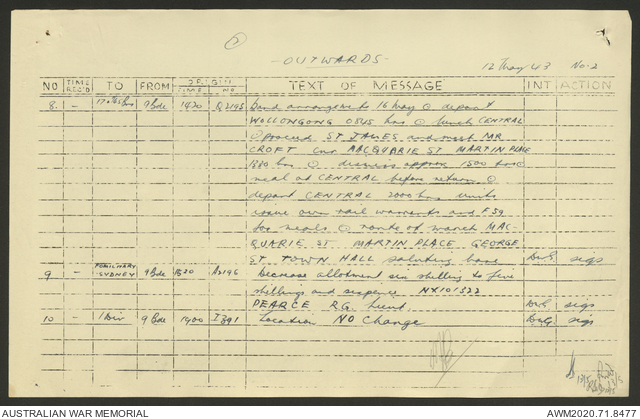 - OUTWARDS -
12 May 43 No. 2
NO TIME REC'D TO FROM ORIGIN TIME NO. TEXT OF MESSAGE INT ACTION
8. - 9 Bde 1420 Q2195 Band arrangements 16 May @ depart
WOLLONGONG 0845 hrs @ lunch CENTRAL
@ proceed ST JAMES and meet MR
CROFT cnr MACQUARIE ST MARTIN PLACE
hrs @ dismiss approx 1500 hrs @
meal at CENTRAL before return @
depart CENTRAL 2000 hrs units
issue own rail warrants and
for meals @ route of march MAC-
QUARIE ST. MARTIN PLACE GEORGE
ST TOWN HALL saluting base sigs
9 - SYDNEY 9 Bde 1520 A2196 Decrease allotment six shilling to five
shillings and sixpence NX101522
PEARCE R.G. Lieut. sigs
10 - 1 Div 9 Bde 1900 I391 Location NO Change sigs
AUSTRALIAN WAR MEMORIAL
AWM2020.71.8477